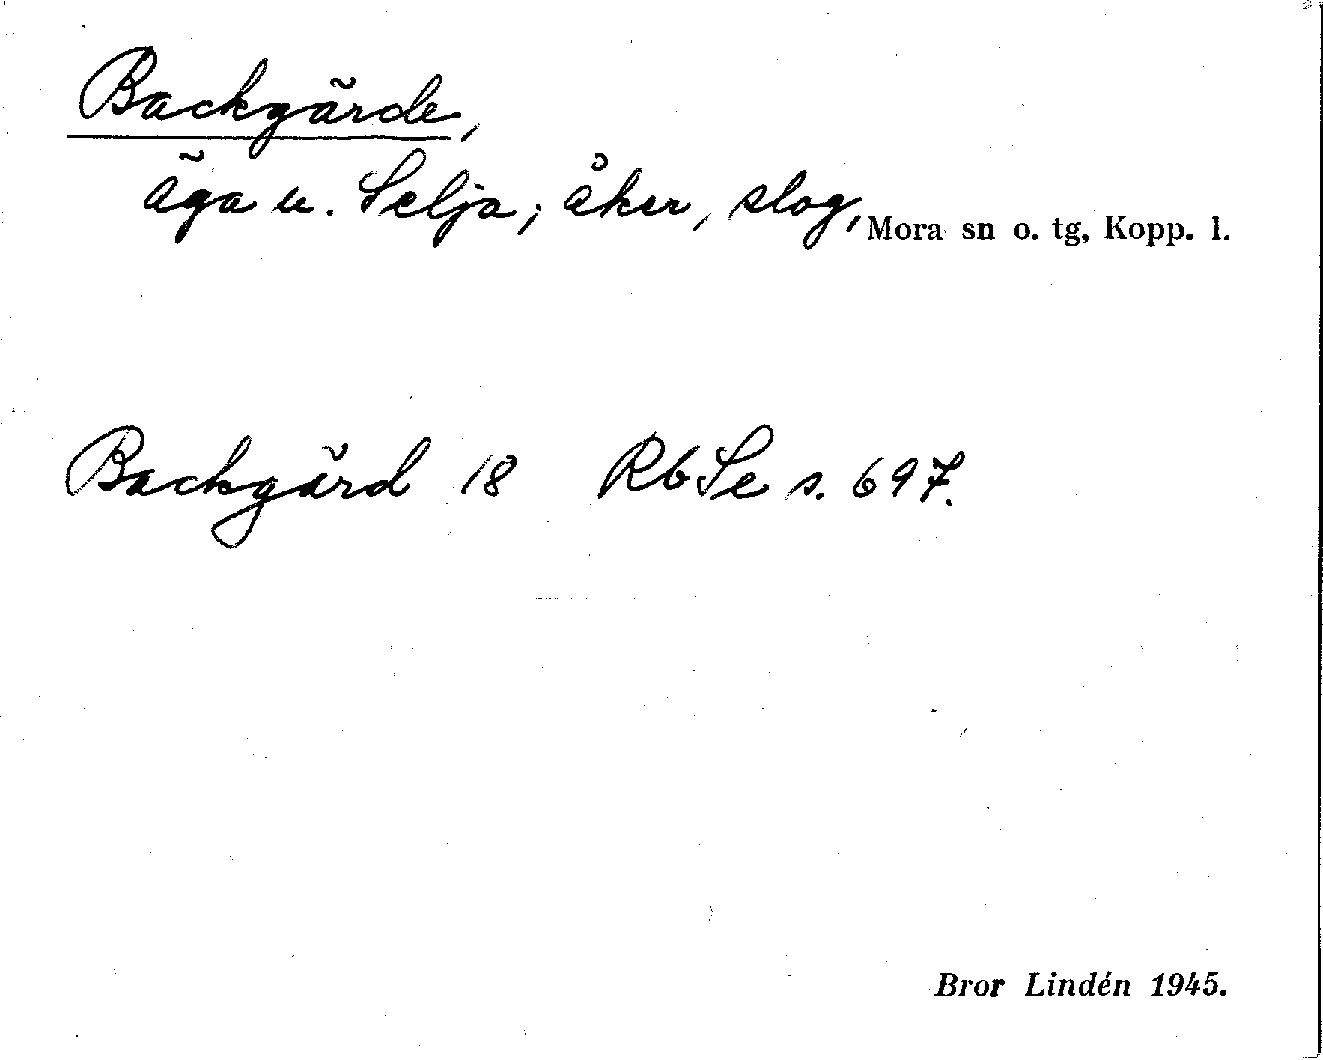 Backgärde,
äga u. Selja; åker, slog, Mora sn o. tg, Kopp. l.
Backgärd 18 RbSe s. 697.
Bror Lindén 1945.